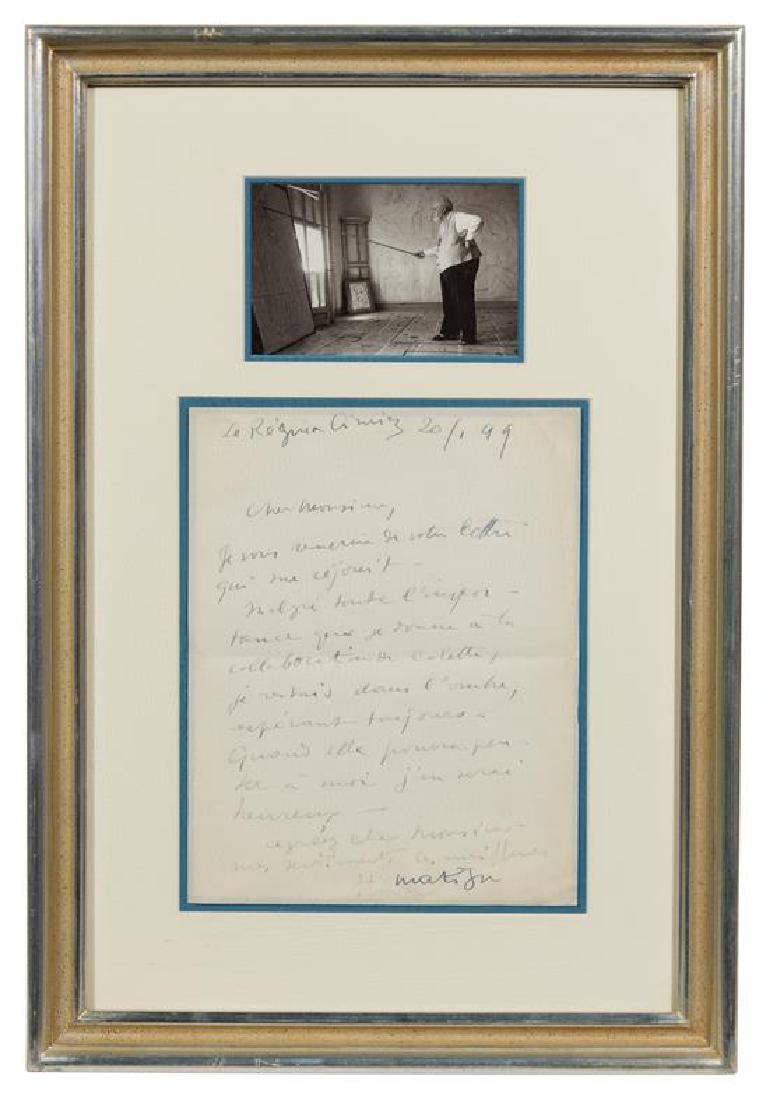 Le Régina Cimiez 20/1 49
Cher Monsieur,
Je vous remercie de votre lettre
qui me réjouit –
Malgré toute l'impor –
tance que je donne à la
collaboration de Colette,
je restais dans l'ombre,
espérant toujours –
Quand elle pourra pen –
ser à moi j'en serai
heureux –
agréez cher Monsieur
mes sentiments les meilleurs
Matisse